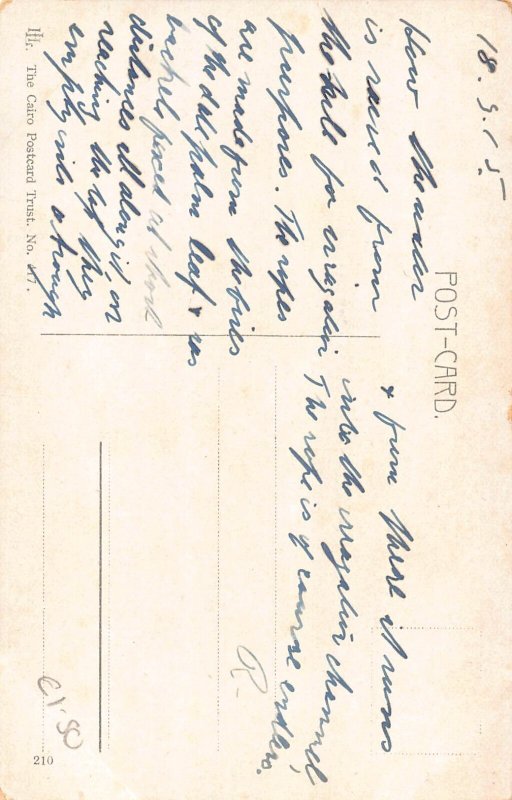 18.9.15.
POST-CARD.
How the water
is raised from
the Nile for irrigation
purposes. The ropes
are made from the fibres
of the date palm leaf &
buckets placed at short
distances all along it on
reaching the top they
empty into a trough
& from there it runs
into the irrigation channel,
The rope is of course endless.
The Cairo Postcard Trust. No. 417.
R-
210